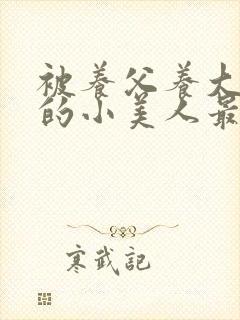 被养父养大
的小美人最
寒武記